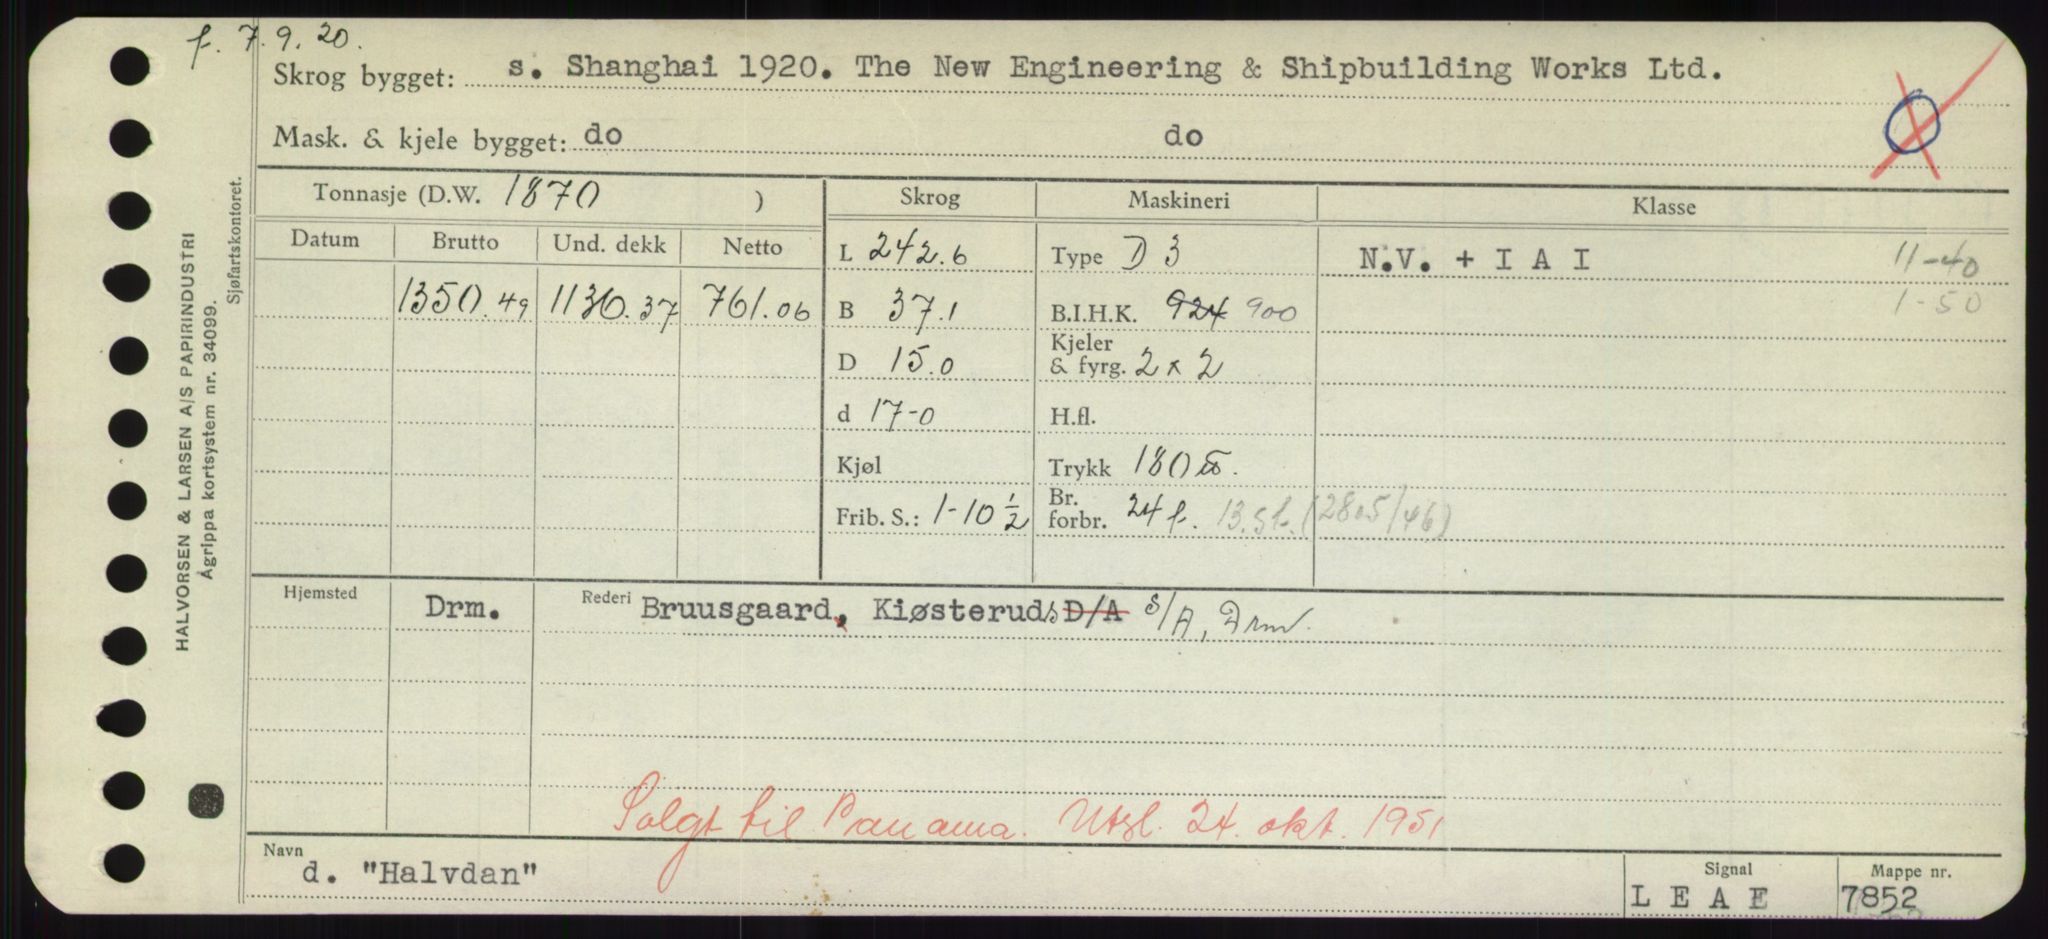 f. 7.9.20.
Skrog bygget: s. Shanghai 1920. The New Engineering & Shipbuilding Works Ltd.
Mask. & kjele bygget: do do
Tonnasje (D.W. 1870 ) Skrog Maskineri Klasse
Datum Brutto Und. dekk Netto L 242.6 Type D 3 N.V. + I A I 11-40
1350.49 1136.37 761.06 B 37.1 B.I.H.K. 924 900 1-50
D 15.0 Kjeler & fyrg. 2 x 2
d 17-0 H.fl.
Kjøl Trykk 180 lb.
Frib. S.: 1-10 ½ Br. forbr. 24 f. 13.sf. (28.5/46)
Hjemsted Drm. Rederi Bruusgaard, Kiøsteruds D/A S/A, Drm.
Solgt til Panama. Utsl. 24. okt. 1951
Navn d. "Halvdan" Signal L E A E Mappe nr. 7852
HALVORSEN & LARSEN A/S PAPIRINDUSTRI
Ågrippa kortsystem nr. 34099.
Sjøfartskontoret.